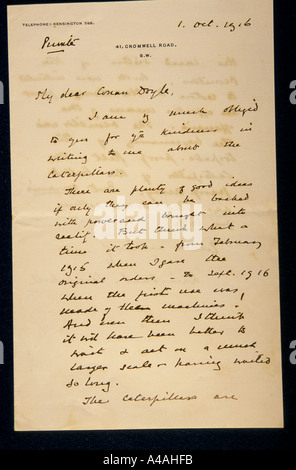 TELEPHONE: KENSINGTON 798.
1. Oct. 1916
Private
41, CROMWELL ROAD,
S.W.
My dear Conan Doyle,
I am very much obliged
to you for yr kindness in
writing to me about the
Caterpillars.
There are plenty of good ideas
if only they can be backed
with power and brought into
reality. But think what a
time it took - from February
1915 when I gave the
original orders - to Sept. 1916
when the first use was
made of these machines!
And even then I think
it wd have been better to
wait & act on a much
larger scale - having waited
so long.
The caterpillars are
alamy
a
a
a
alamy
Image ID: A4AHFB
www.alamy.com